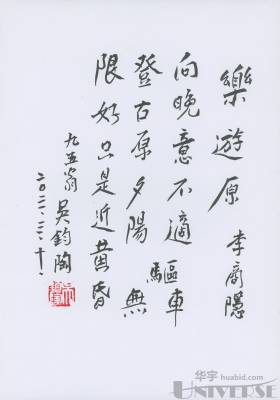 樂遊原 李商隱
向晚意不適驅車
登古原夕陽無
限好只是近黃昏
九五翁 吳鈞陶
华宇 huabid.com
UNIVERSE